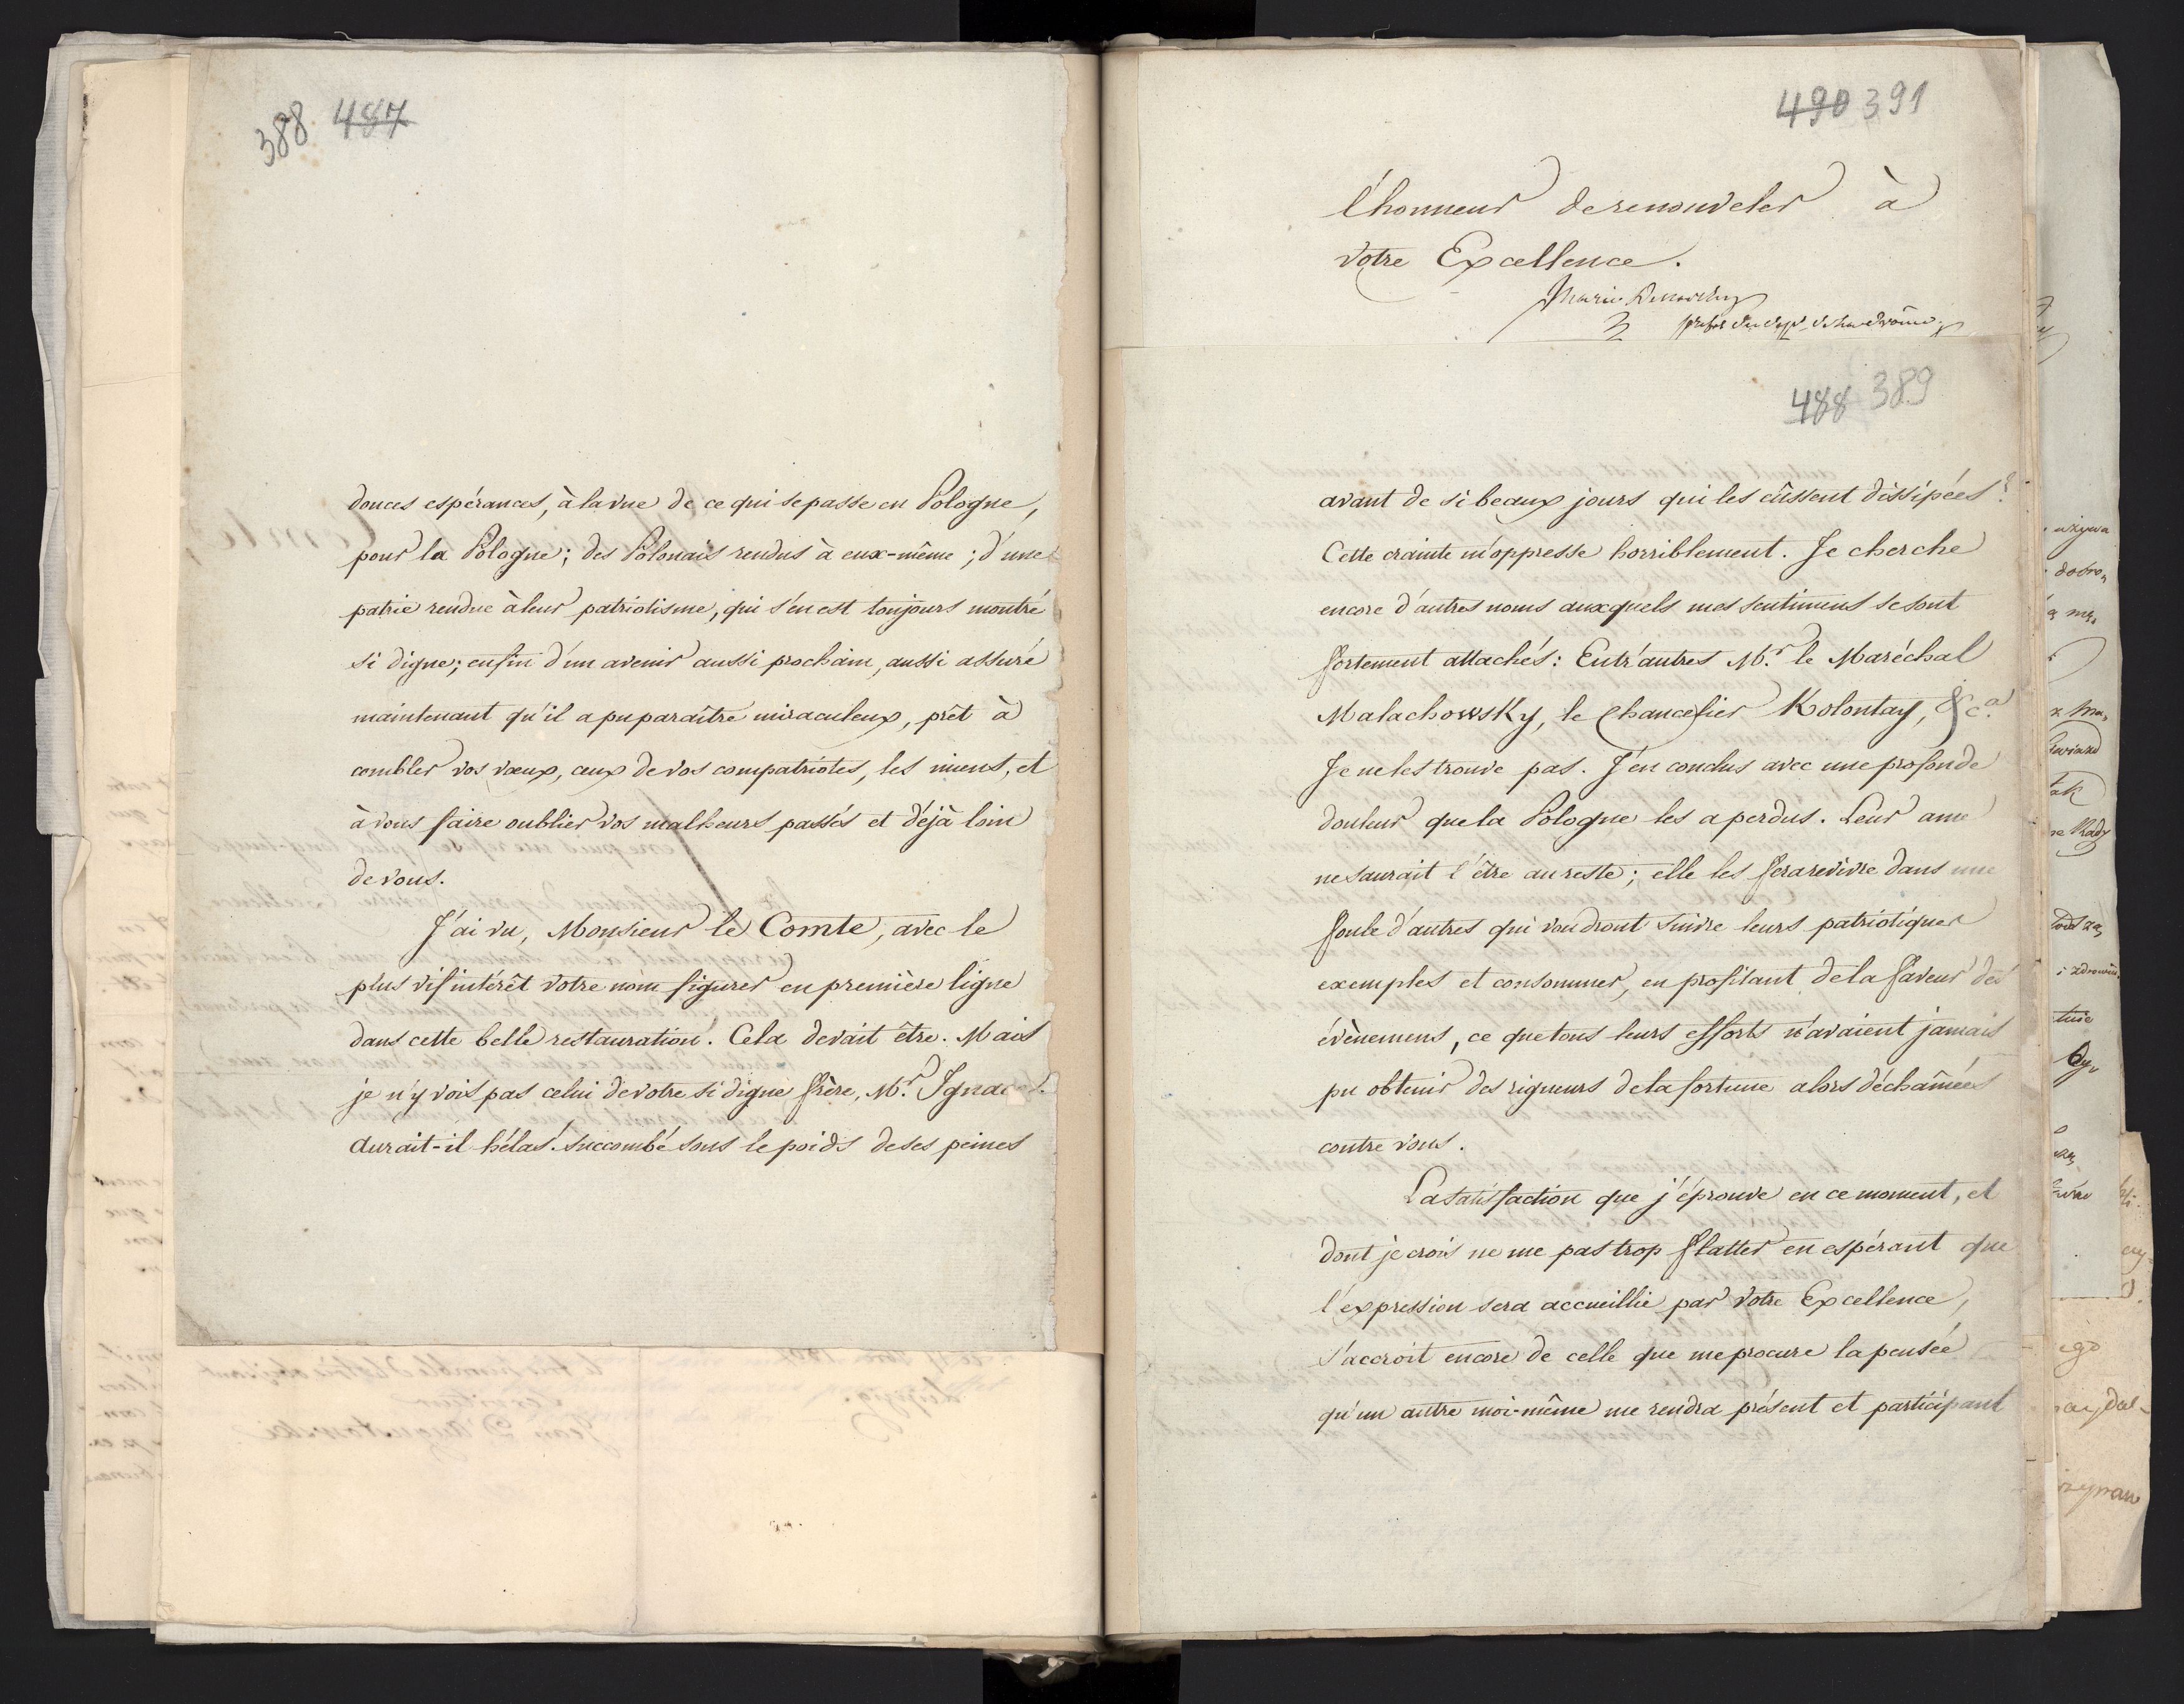 388 487
douces espérances, à la vue de ce qui se passe en Pologne,
pour la Pologne; des Polonais rendus à eux-même; d'une
patrie rendue à leur patriotisme, qui s'en est toujours montré
si digne; enfin d'un avenir aussi prochain, aussi assuré
maintenant qu'il a pu paraître miraculeux, prêt à
combler vos vœux, ceux de vos compatriotes, les miens, et
à vous faire oublier vos malheurs passés et déjà loin
de vous.
J'ai vu, Monsieur le Comte, avec le
plus vif intérêt votre nom figurer en première ligne
dans cette belle restauration. Cela devait être. Mais
je n'y vois pas celui de votre si digne frère, Mr.
Aurait-il hélas! succombé sous le poids de ses peines
490 391
l'honneur de renouveler à
votre Excellence.
488 389
avant de si beaux jours qui les eûssent dissipées?
Cette crainte m'oppresse horriblement. Je cherche
encore d'autres noms auxquels mes sentimens se sont
fortement attachés: Entr'autres Mr. le Maréchal
Malachowsky, le Chancelier Kolontay, &ca.
Je ne les trouve pas. J'en conclus avec une profonde
douleur que la Pologne les a perdus. Leur ame
ne saurait l'être au reste; elle les fera revivre dans une
foule d'autres qui voudront suivre leurs patriotiques
exemples et consommer, en profitant de la faveur des
évènemens, ce que tous leurs efforts n'avaient jamais
pu obtenir des rigueurs de la fortune alors déchaînées
contre vous.
La satisfaction que j'éprouve en ce moment, et
dont je crois ne me pas trop flatter en espérant que
l'expression sera accueillie par votre Excellence,
s'accroit encore de celle que me procure la pensée
qu'un autre moi-même me rendra présent et participant